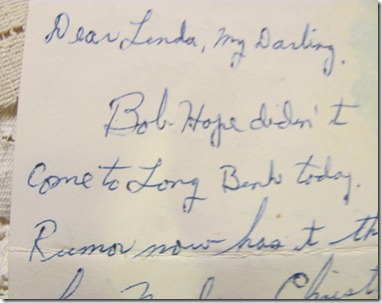 Dear Linda, My Darling.
Bob Hope didn't
come to Long Binh today.
Rumor now has it th
Christ